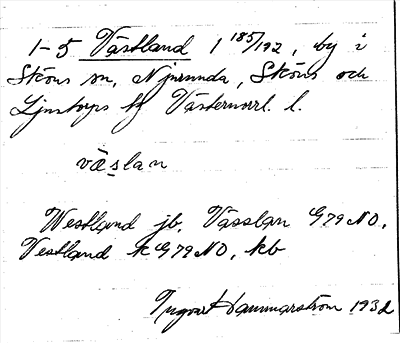 1-5 Västland 1 185/192, by i
Sköns sn, Njurunda, Sköns och
Ljustorps tg Västernorrl. l.
väslan
Westland jb. Vässlan G79 NO,
Vestland k G79 NO, kb
Ingvart Hammarström 1932